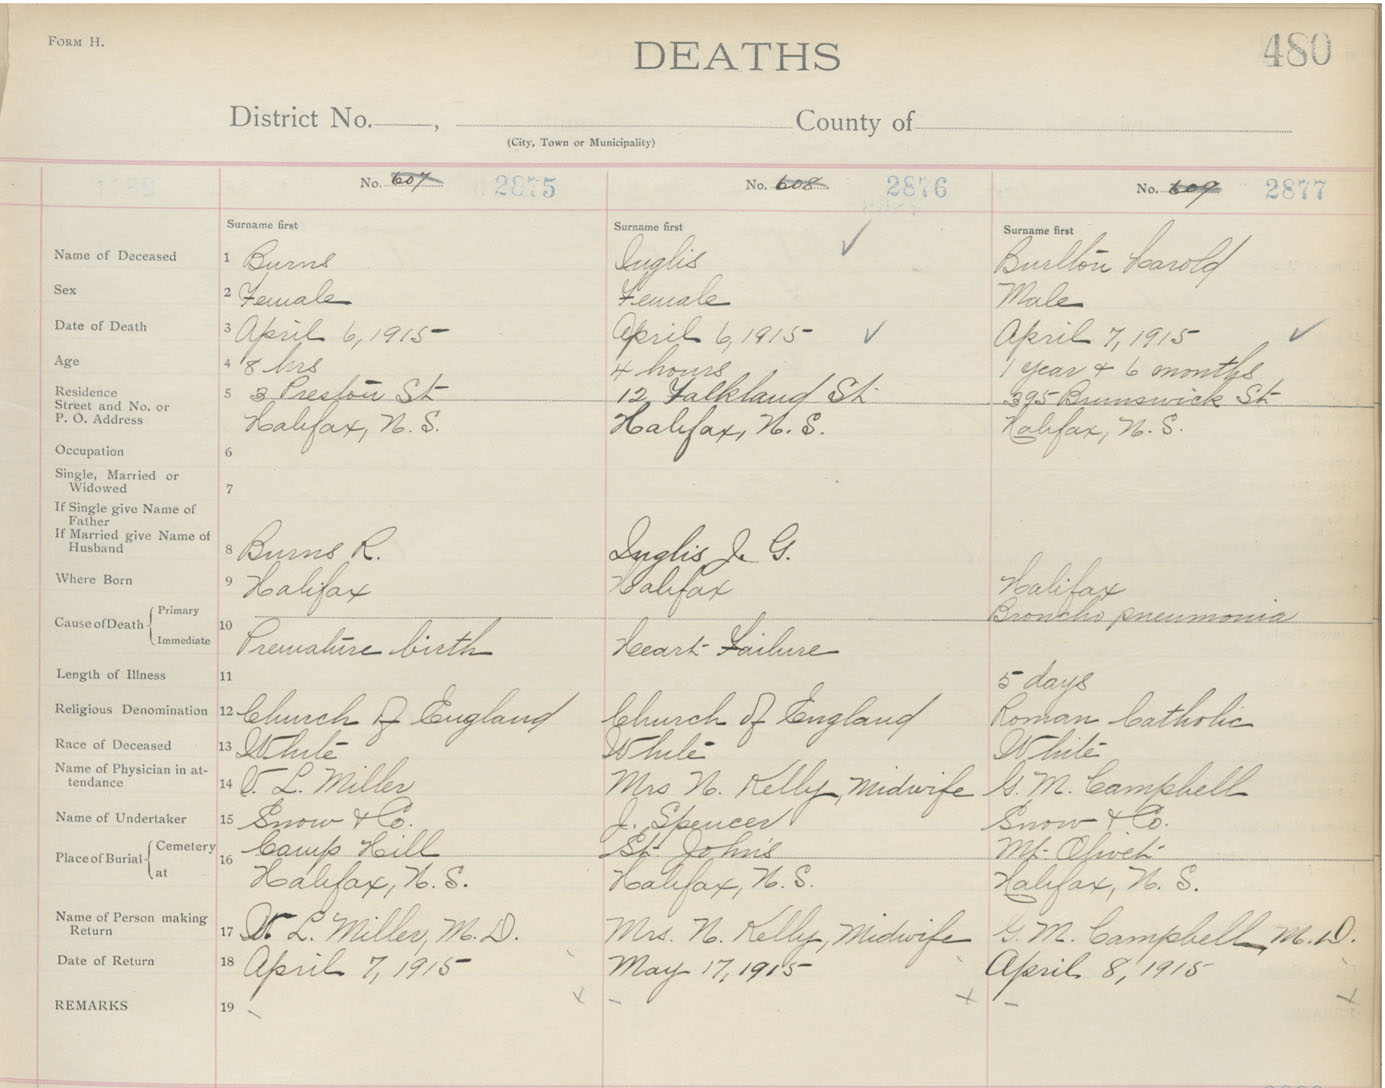 FORM H.
DEATHS
480
District No. , County of
(City, Town or Municipality)
No. 607 2875
No. 608 2876
No. 609 2877
Surname first
Surname first
Surname first
Name of Deceased 1 Burns Inglis Burlton Harold
Sex 2 Female Female Male
Date of Death 3 April 6, 1915 April 6, 1915 April 7, 1915
Age 4 8 hrs 4 hours 1 year + 6 months
Residence
Street and No. or 5 3 Preston St 12 Falkland St 395 Brunswick St
P. O. Address Halifax, N. S. Halifax, N. S. Halifax, N. S.
Occupation 6
Single, Married or
Widowed 7
If Single give Name of
Father
If Married give Name of
Husband 8 Burns R. Inglis J. G.
Where Born 9 Halifax Halifax Halifax
Cause of Death Primary 10 Broncho pneumonia
Immediate Premature birth Heart Failure
Length of Illness 11 5 days
Religious Denomination 12 Church of England Church of England Roman Catholic
Race of Deceased 13 White White White
Name of Physician in at-
tendance 14 L. Miller Mrs N. Kelly, Midwife G. M. Campbell
Name of Undertaker 15 Snow + Co. J. Spencer Snow + Co.
Place of Burial Cemetery 16 Camp Hill St. John's Mt. Olivet
at Halifax, N. S. Halifax, N. S. Halifax, N. S.
Name of Person making
Return 17 L. Miller, M. D. Mrs. N. Kelly, Midwife G. M. Campbell, M. D.
Date of Return 18 April 7, 1915 May 17, 1915 April 8, 1915
REMARKS 19